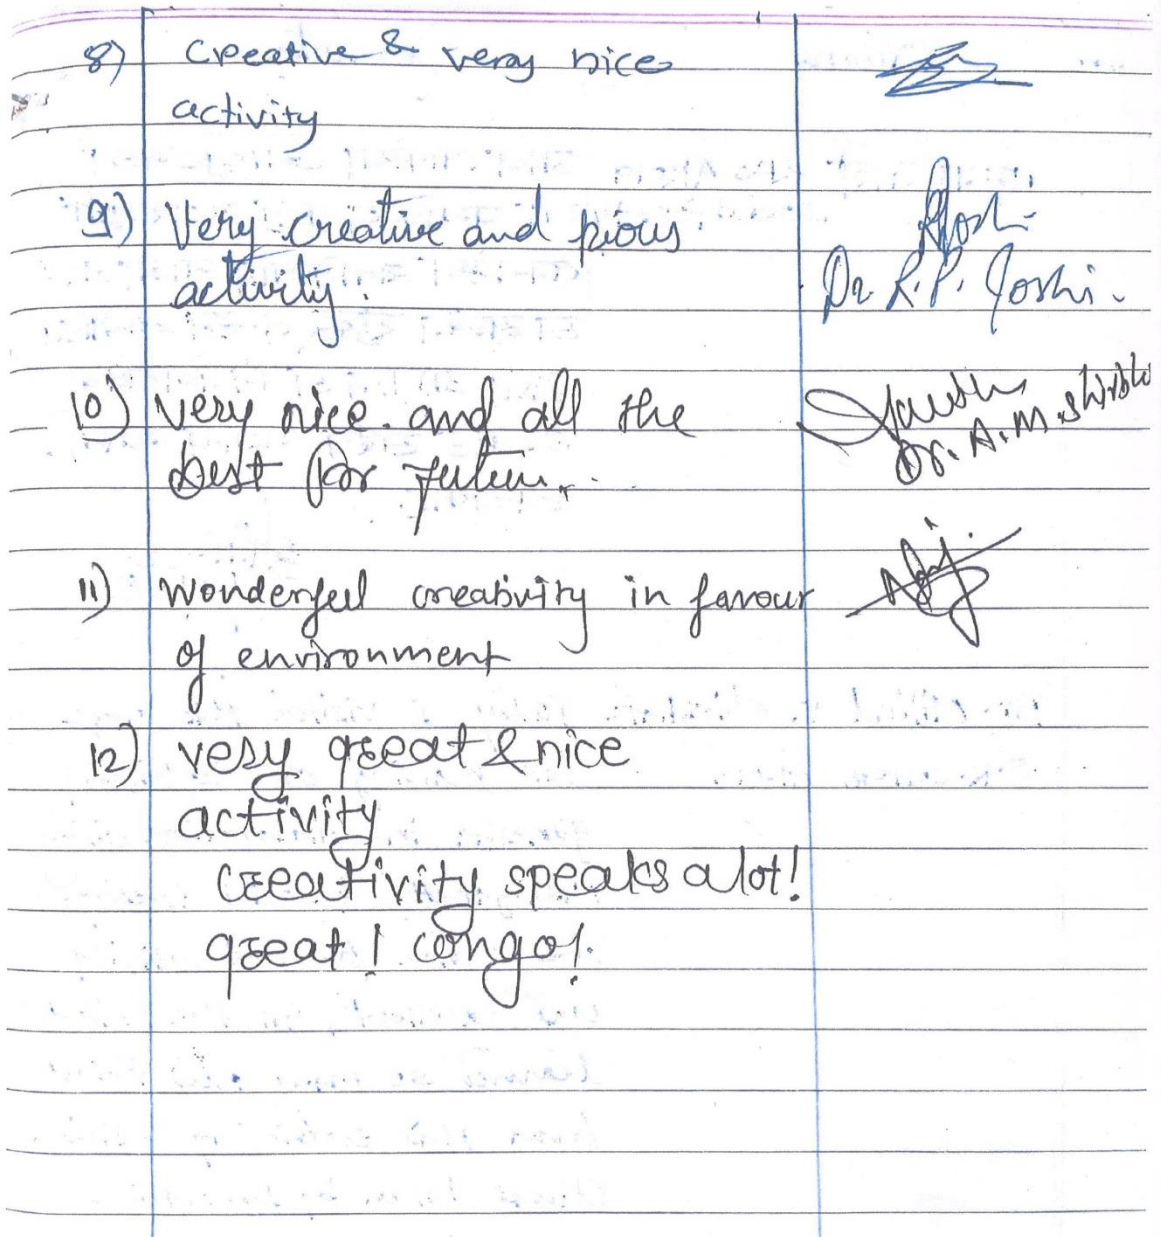 8) creative & very nice
activity
9) Very creative and pious
activity.
Dr R.P. Joshi.
10) very nice. and all the
best for future.
Dr. A.M.
11) Wonderful creativity in favour
of environment
12) very great & nice
activity
creativity speaks a lot!
great! congo!